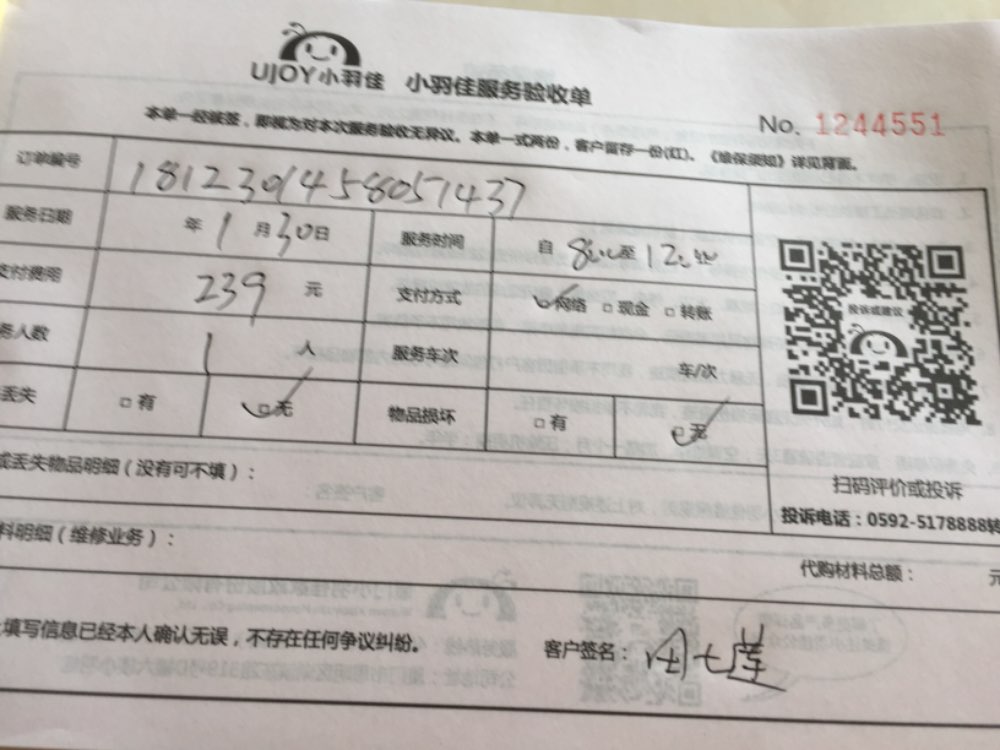 UJOY小羽佳 小羽佳服务验收单
No. 1244551
本单一经核签，即视为对本次服务验收无异议。本单一式两份，客户留存一份(红)。《维保须知》详见背面。
订单编号 1812301458051437
服务日期 年 1 月 30 日 服务时间 自 8:00 至 12:00
支付费用 239 元 支付方式 网络 □ 现金 □ 转账
务人数 1 人 服务车次 车/次
丢失 □ 有 □ 无 物品损坏 □ 有 □ 无
投诉或建议
扫码评价或投诉
投诉电话：0592-5178888转
或丢失物品明细（没有可不填）：
料明细（维修业务）：
代购材料总额： 元
填写信息已经本人确认无误，不存在任何争议纠纷。
客户签名：